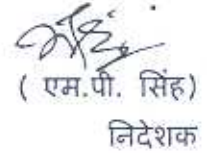 ( एम.पी. सिंह)
निदेशक